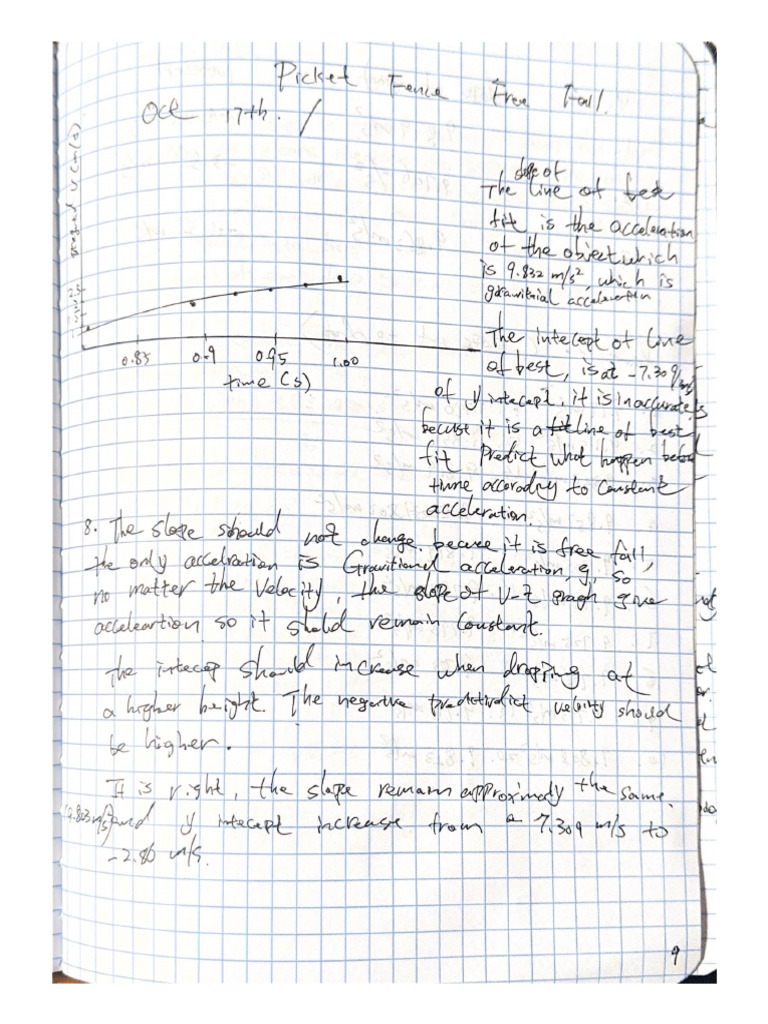 Picket Fence Free Fall.
Oct 17th.
slope of
The line of best
fit is the acceleration
of the object which
is 9.832 m/s², which is
The intecept of line
of best, is at -7.309 m/s
of y intecept, it is inaccurate
becuse it is a line of best
fit Predict what happen
time accorodny to constant
acceleration.
0.85 0.9 0.95 1.00
time (s)
8. The slope should not change. becuse it is free fall,
the only accelration is Gravitional acceleration, g, so
no matter the velocity, the slope of v-t graph give
acceleartion so it should remain constant.
The intecep should increase when dropping at
a higher height. The negative velocity should
be higher.
It is right, the slope remain approximatly the same.
(9.803 m/s²) and y intecept increase from - 7.309 m/s to
-2.86 m/s.
9